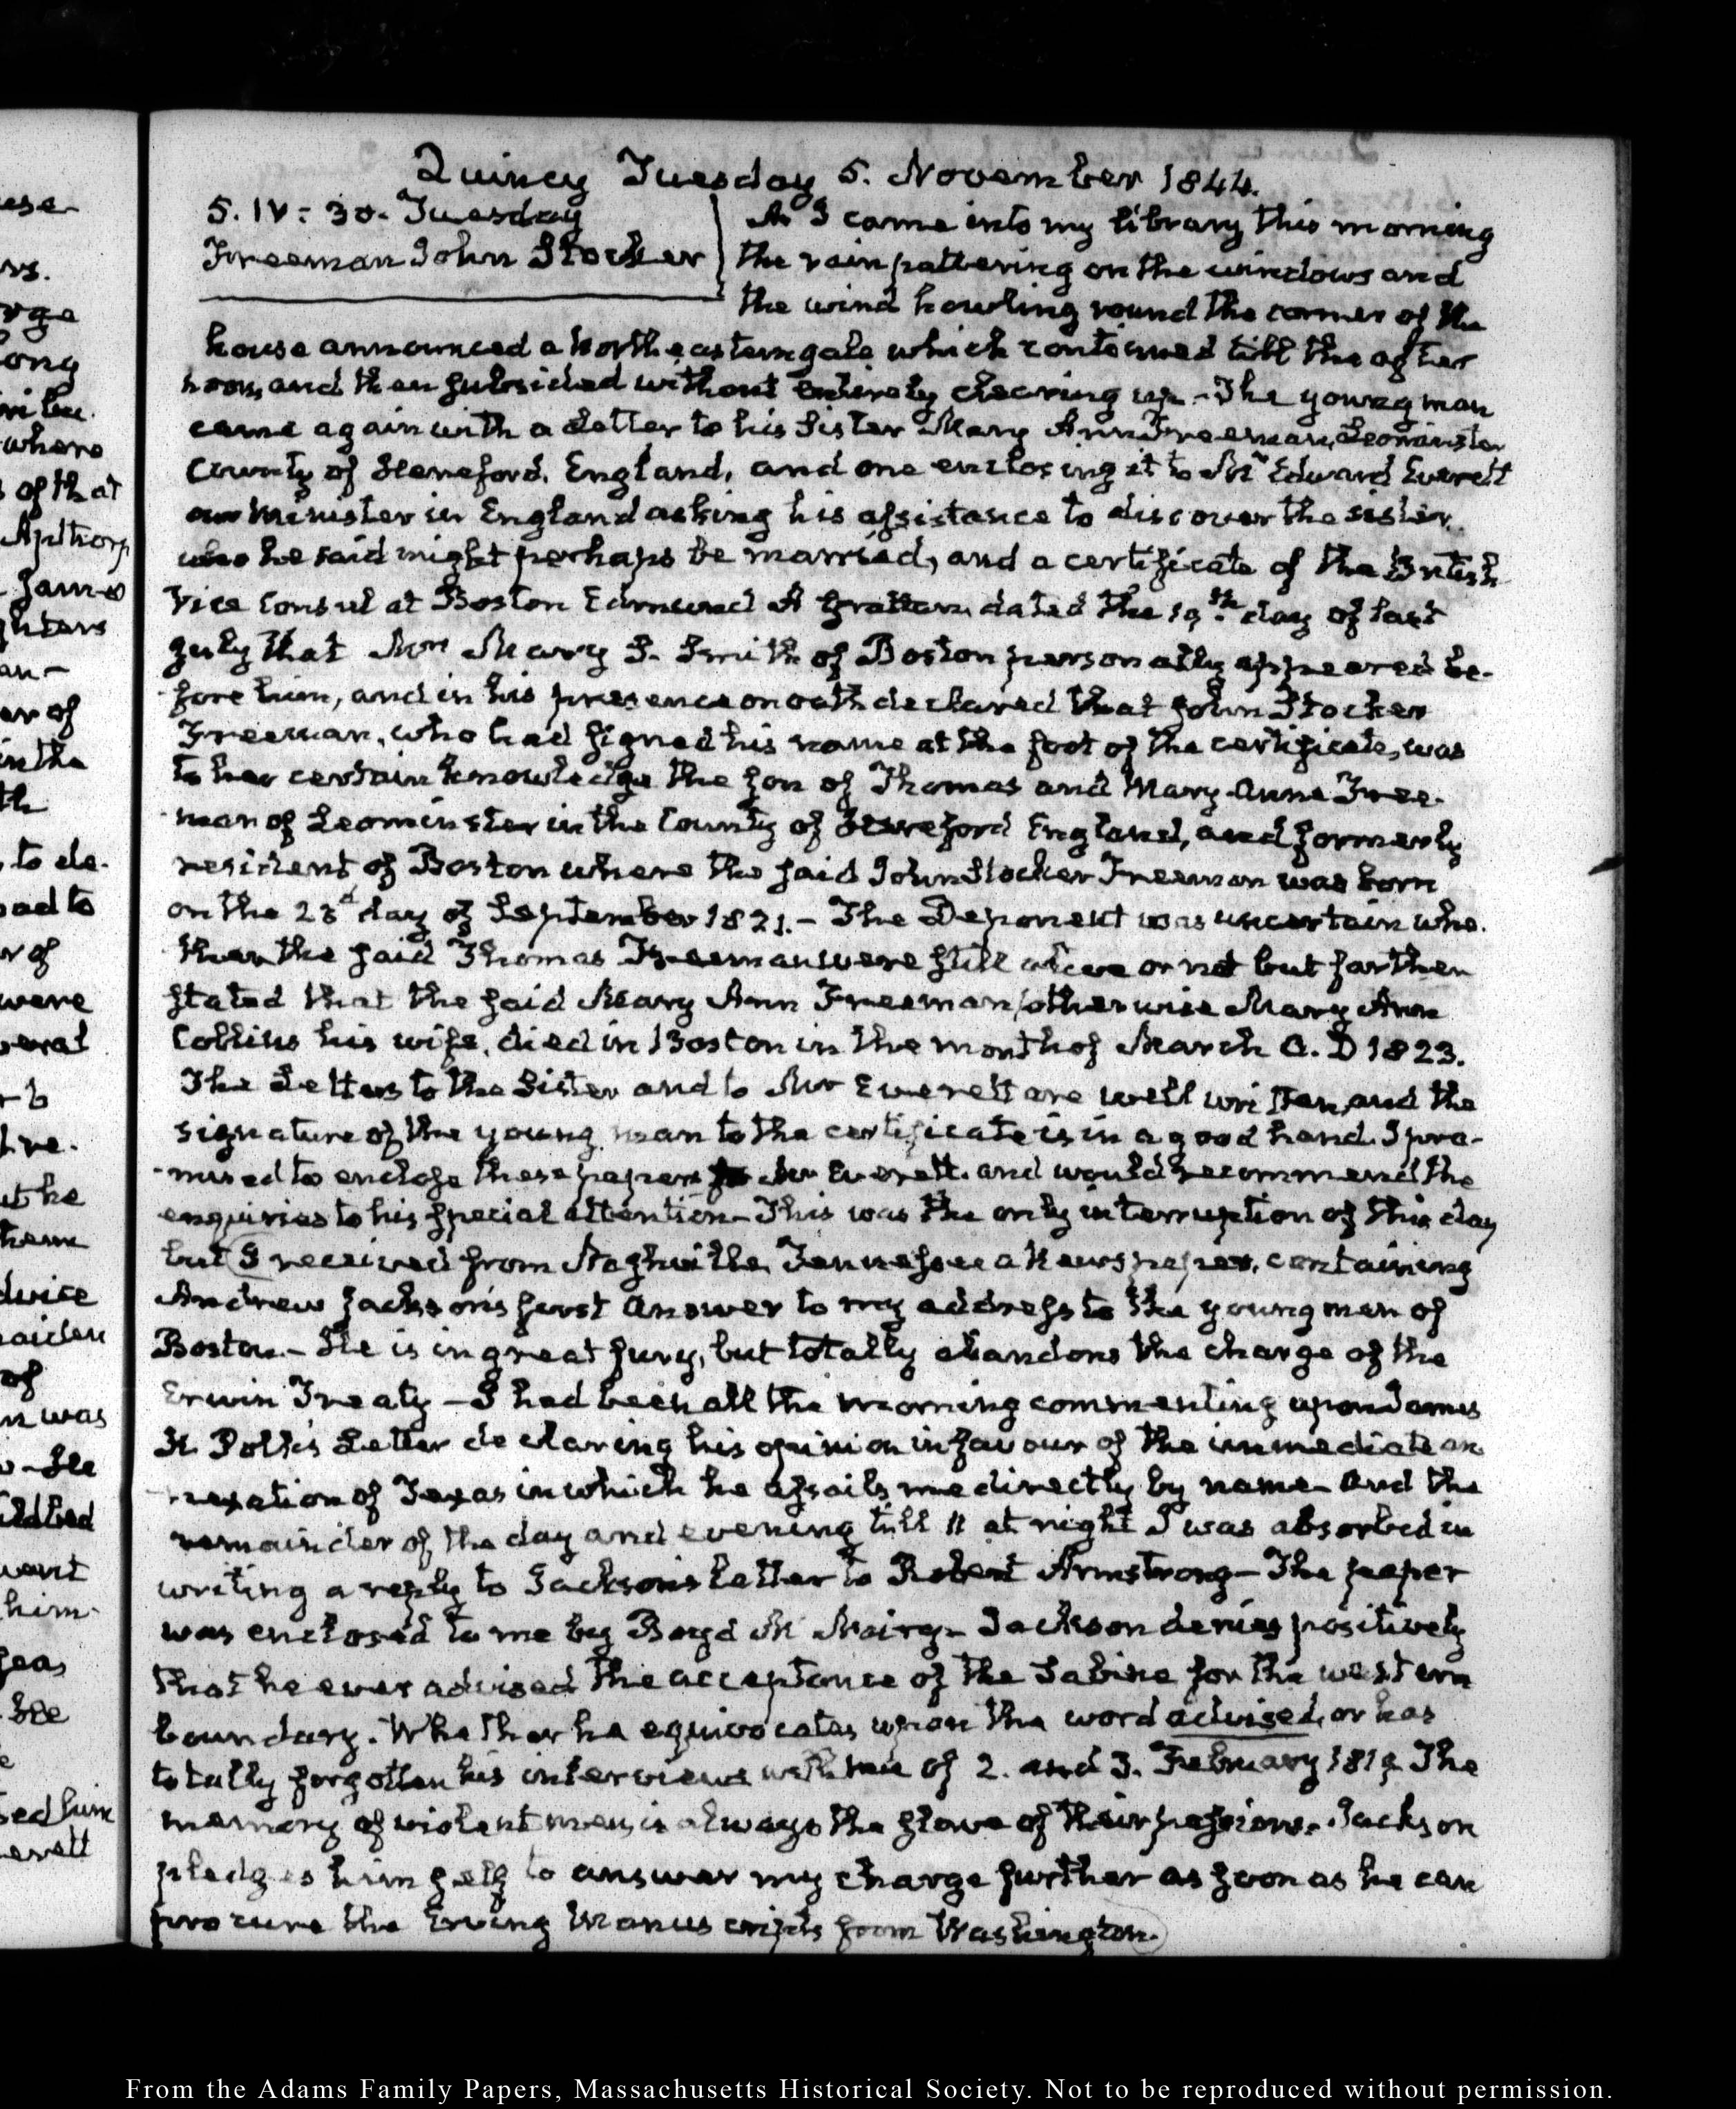 ese
vs.
ong
where
s of that
Apthorp
James
ghters
an-
er of
in the
th
to de-
oad to
r of
were
veral
tive.
ut he
them
dvice
maiden
of
m was
He
want
him-
He
sed him
erett
Quincy Tuesday 5. November 1844.
5. IV: 30. Tuesday
Freeman John Stocker
As I came into my library this morning
the rain pattering on the windows and
the wind howling round the corner of the
house announced a North eastern gale which continued till the after
noon, and then subsided without entirely clearing up - The young man
came again with a Letter to his Sister Mary Ann Freeman, Leominster
County of Hereford. England, and one enclosing it to Mr Edward Everett
our Minister in England asking his assistance to discover the sister,
who he said might perhaps be married, and a certificate of the British
Vice Consul at Boston Edmund A Grattan, dated the 19th day of last
July that Mrs Mary S. Smith of Boston personally appeared be-
fore him, and in his presence on oath declared that John Stocker
Freeman, who had signed his name at the foot of the certificate, was
to her certain knowledge the son of Thomas and Mary-Anne Free-
man of Leominster in the County of Hereford England, and formerly
resident of Boston where the said John Stocker Freeman was born
on the 23d day of September 1821. - The Deponent was uncertain whe-
ther the said Thomas Freeman were still alive or not but farther
stated that the said Mary Ann Freeman, otherwise Mary Ann
Collins his wife, died in Boston in the month of March A. D 1823.
The Letters to the Sister and to Mr Everett are well written, and the
signature of the young man to the certificate is in a good hand. I pro-
-mised to enclose these papers to Mr Everett. and would recommend the
enquiries to his special attention - This was the only interruption of this day
but I received from Nashville, Tennessee a Newspaper, containing
Andrew Jackson's first answer to my address to the young men of
Boston. - He is in great fury, but totally abandons the charge of the
Erwin Treaty - I had been all the morning commenting upon James
K. Polk's Letter declaring his opinion in favour of the immediate an
-nexation of Texas in which he assails me directly by name - and the
remainder of the day and evening till 11 at night I was absorbed in
writing a reply to Jackson's Letter to Robert Armstrong - The paper
was enclosed to me by Boyd Mc Nairy - Jackson denies positively
that he ever advised the acceptance of the Sabine for the western
boundary. Whether he equivocates upon the word advised, or has
totally forgotten his interviews with me of 2. and 3. February 1819. The
memory of violent men, is always the slave of their passions. - Jackson
pledges himself to answer my charge further as soon as he can
procure the Erving Manuscripts from Washington.
From the Adams Family Papers, Massachusetts Historical Society. Not to be reproduced without permission.